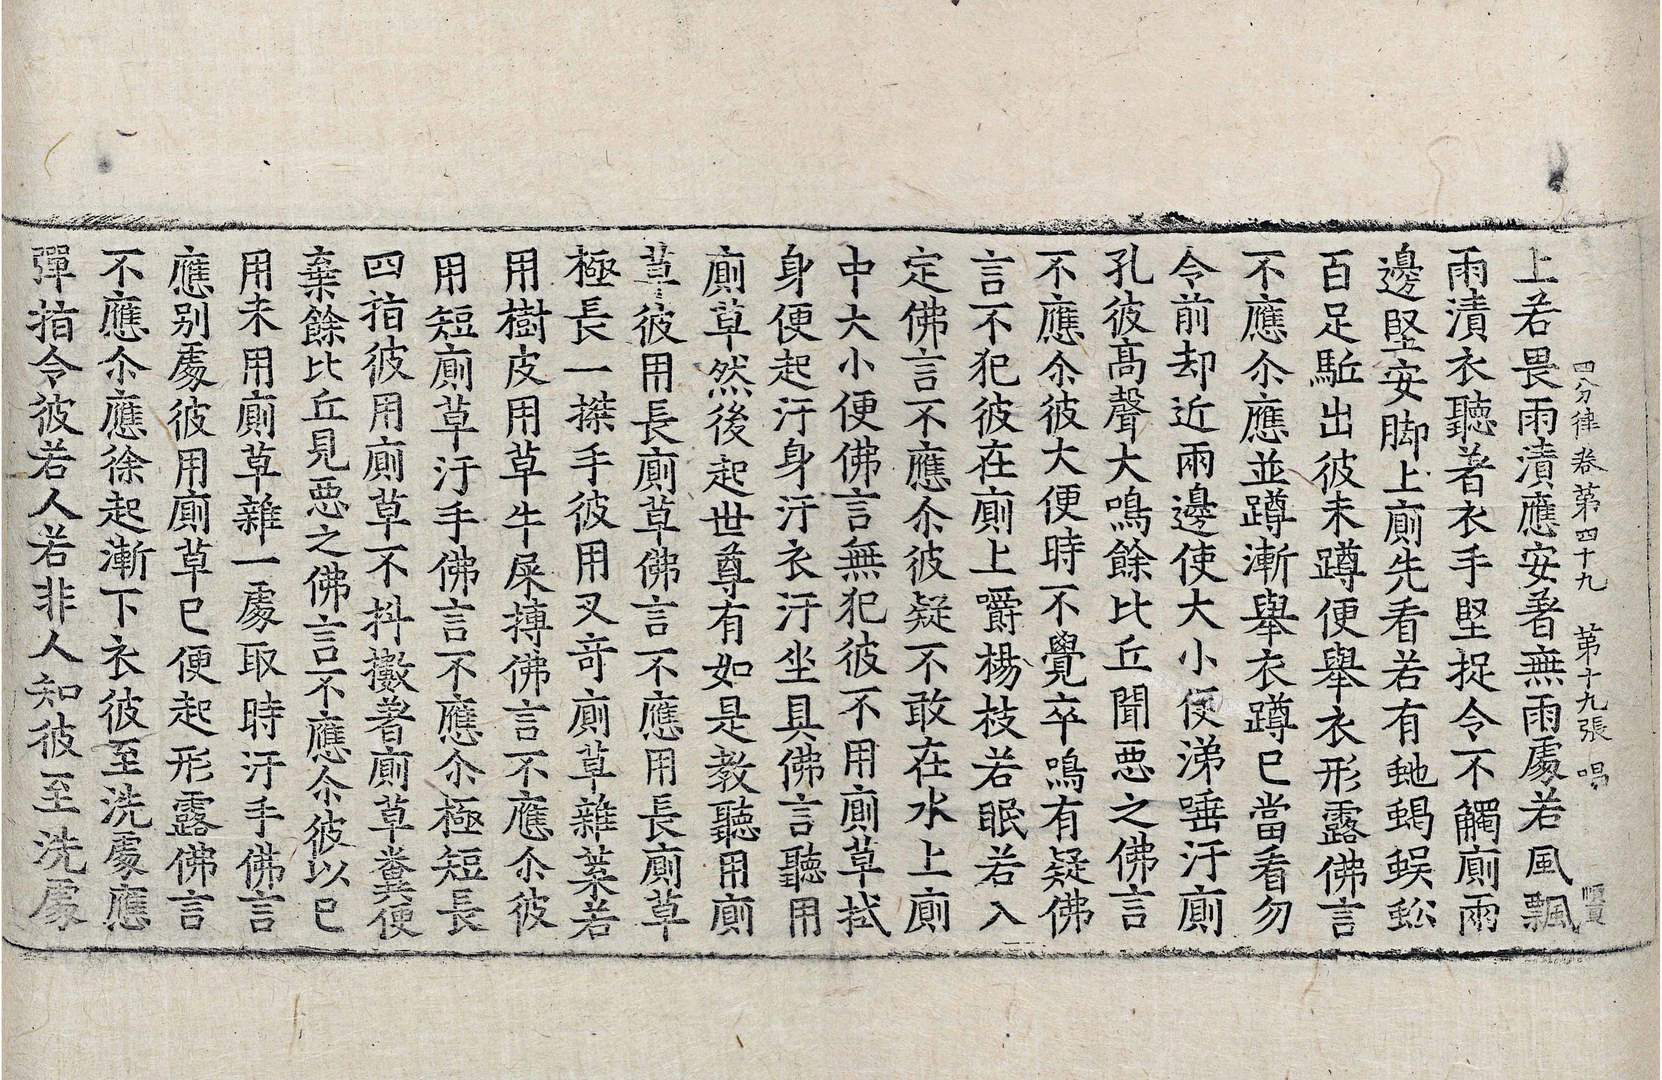 四分律卷第四十九 第十九張 唱
上若畏雨漬應安著無雨處若風飄
雨漬衣聽著衣手堅捉令不觸廁雨
邊堅安脚上廁先看若有虵蝎蜈蚣
百足駈出彼未蹲便舉衣形露佛言
不應尒應並蹲漸舉衣蹲已當看勿
令前却近兩邊使大小便涕唾汙廁
孔彼高聲大鳴餘比丘聞惡之佛言
不應尒彼大便時不覺卒鳴有疑佛
言不犯彼在廁上嚼楊枝若眠若入
定佛言不應尒彼疑不敢在水上廁
中大小便佛言無犯彼不用廁草拭
身便起汙身汙衣汙坐具佛言聽用
廁草然後起世尊有如是教聽用廁
草彼用長廁草佛言不應用長廁草
極長一搩手彼用叉奇廁草雜葉若
用樹皮用草牛屎摶佛言不應尒彼
用短廁草汙手佛言不應尒極短長
四指彼用廁草不抖擻著廁草糞便
棄餘比丘見惡之佛言不應尒彼以已
用未用廁草雜一處取時汙手佛言
應別處彼用廁草已便起形露佛言
不應尒應徐起漸下衣彼至洗處應
彈指令彼若人若非人知彼至洗處